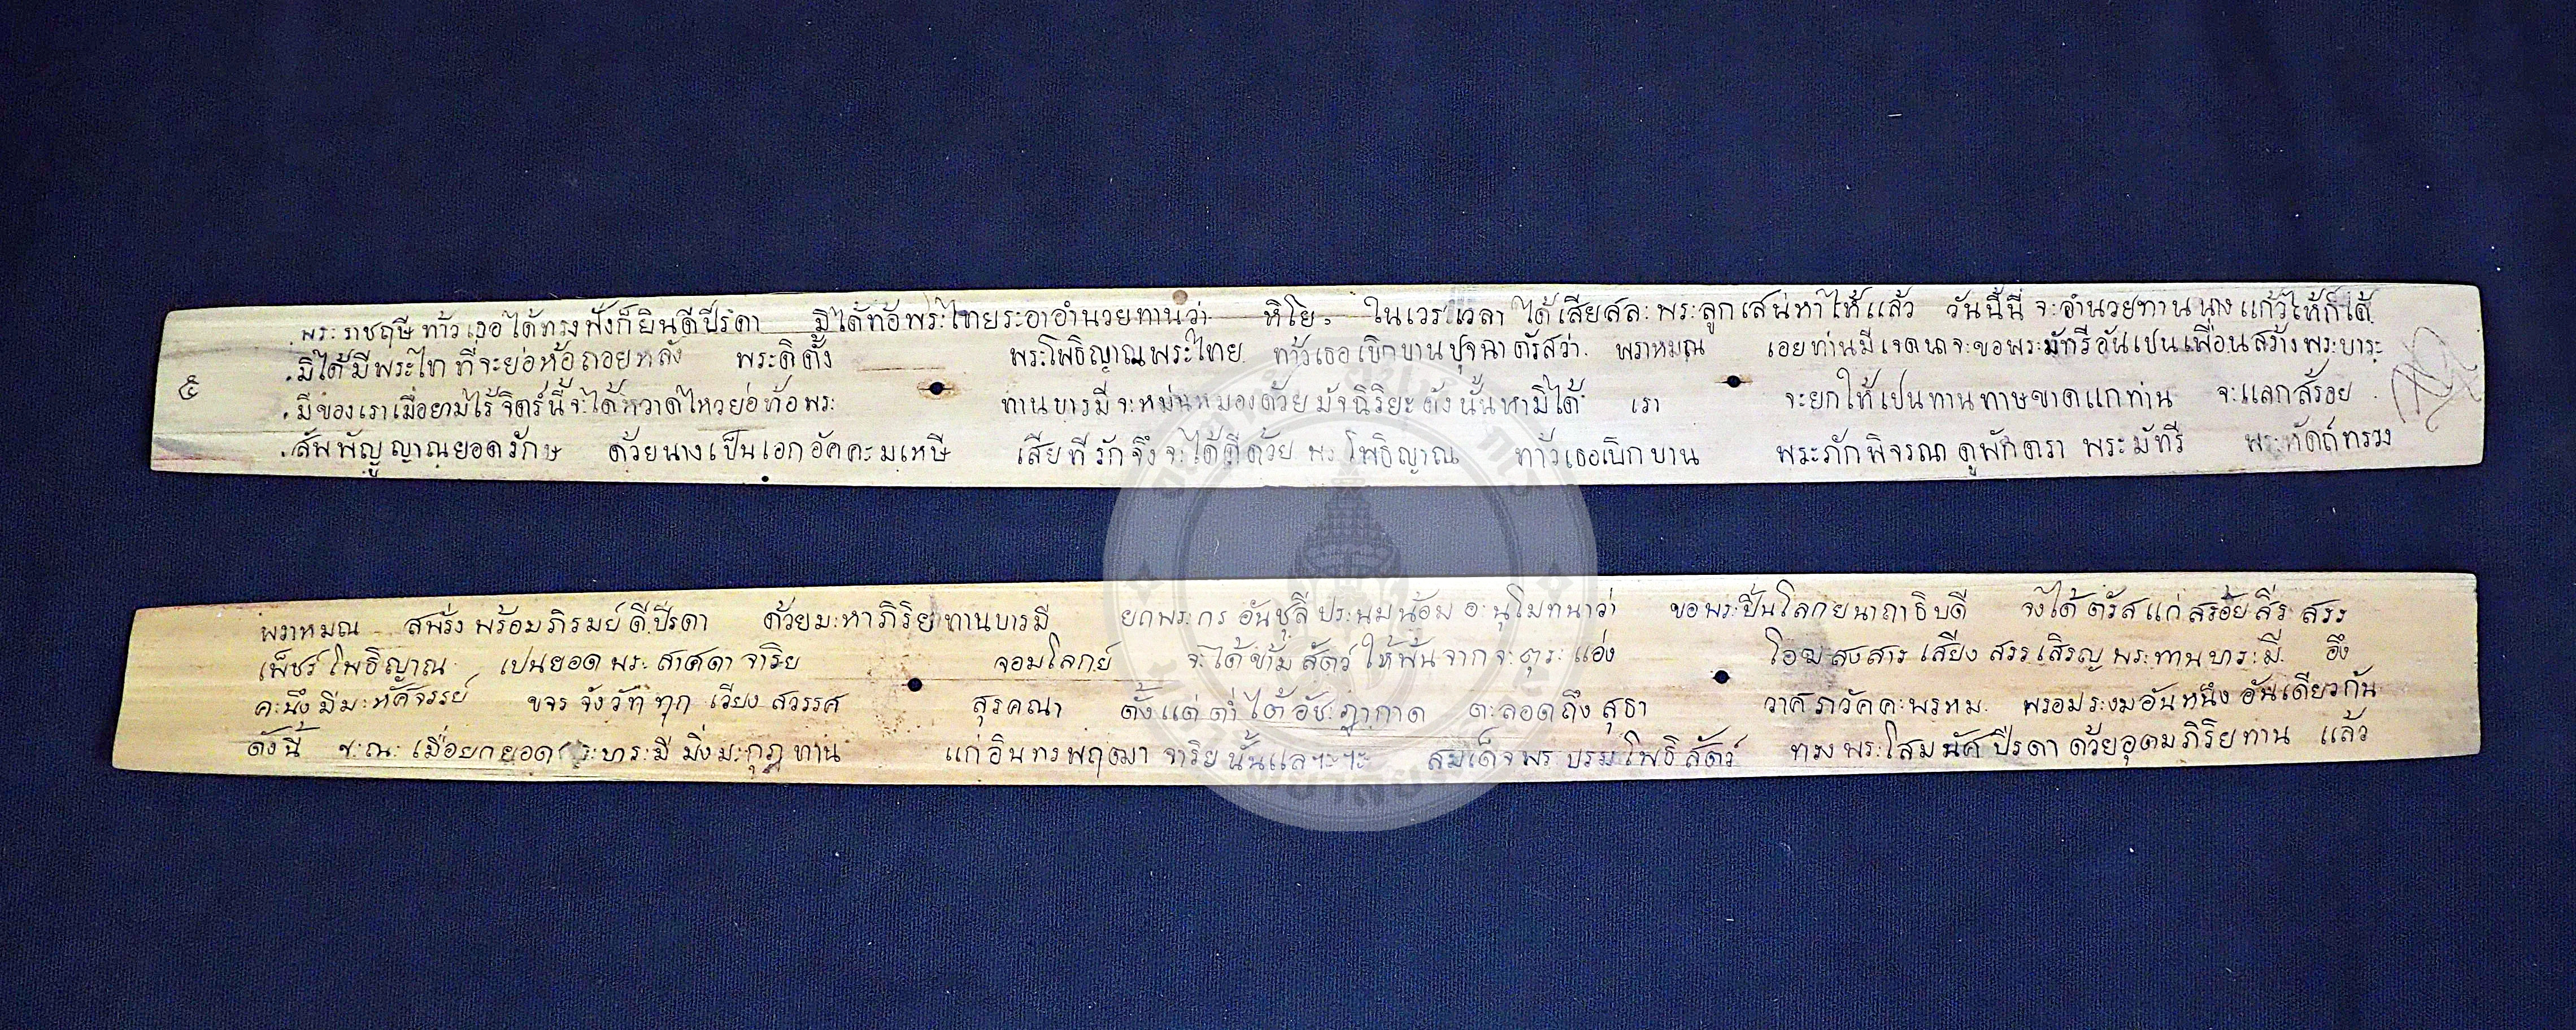 พระราชฤษี ท้าวเธอได้ทรงฟังก็ยินดีปีรดา มิได้ท้อพระไทยระอาอำนวยทานว่า หิโย ในเวรเวลา ได้เสียสละ พระลูกเสน่หาให้แล้ว วันนี้นี่ จะอำนวยทานนางแก้วให้ก็ได้
มิได้มีพระไทที่จะย่อห้อถอยหลัง พระดิตั้ง พระโพธิญาณพระไทย ท้าวเธอเบิกบานปุจฉาตรัสว่า พราหมณ เอยท่านมีเจตนาจะขอพระมัทรีอันเปนเพื่อนสร้างพระบาระ
๕ มีของเราเมื่อยามไร้ จิตร์นี้จะได้หวาดไหวย่อท้อพระ ทานบารมีจะหม่นหมองด้วยมัจฉิริยะดังนั้นหามิได้ เรา จะยกให้เปนทานทาษขาดแกท่าน จะแลกสร้อย
สัพพัญญูญาณยอดรักษ ด้วยนางเป็นเอกอัคคะมเหษี เสียทีรักจึงจะได้ดีด้วย พระโพธิญาณ ท้าวเธอเบิกบาน พระภักพิจรณาดูพักตรา พระมัทรี พระหัดถ์ทรวง
พราหมณ สพรั่งพร้อมภิรมย์ดีปีรดา ด้วยมะหาภิริยทานบารมี ยกพระกรอันชุลีประนมน้อมอะนุโมทนาว่า ขอพระปิ่นโลกยนาถาธิบดี จงได้ตรัสแก่สร้อยสีรสรร
เพ็ชร์โพธิญาณ เปนยอดพระสาศดาจาริย จอมโลกย์ จะได้ข้ามสัตว์ให้พ้นจากจะตุระแอ่ง โอฆสงสาร เสียงสรรเสริญพระทานบาระมี อึง
คะนึงมีมะหัศจรรย์ ขจรจังวัททุกเวียงสวรรค สุรคณา ตั้งแต่ต่ำใต้อัชะฎากาด ตะลอดถึงสุธา วาศภวัคคะพรหม พรอมระงมอันหนึงอันเดียวกัน
ดังนี้ ขะณะเมื่อยกยอดพระบาระมีมิ่งมะกุฎทาน แก่อินทรพฤฒาจาริยนั้นแลฯะฯะ สมเด็จพรบรรมโพธิสัตว์ ทรงพระโสมนัศปีรดาด้วยอุตมภิริยทาน แล้ว